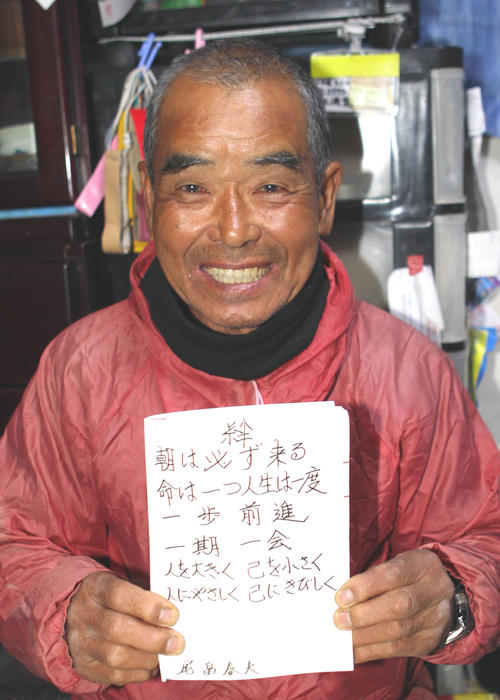 絆
朝は必ず来る
命は一つ人生は一度
一歩前進
一期一会
人を大きく 己を小さく
人にやさしく 己にきびしく
尾畠春夫